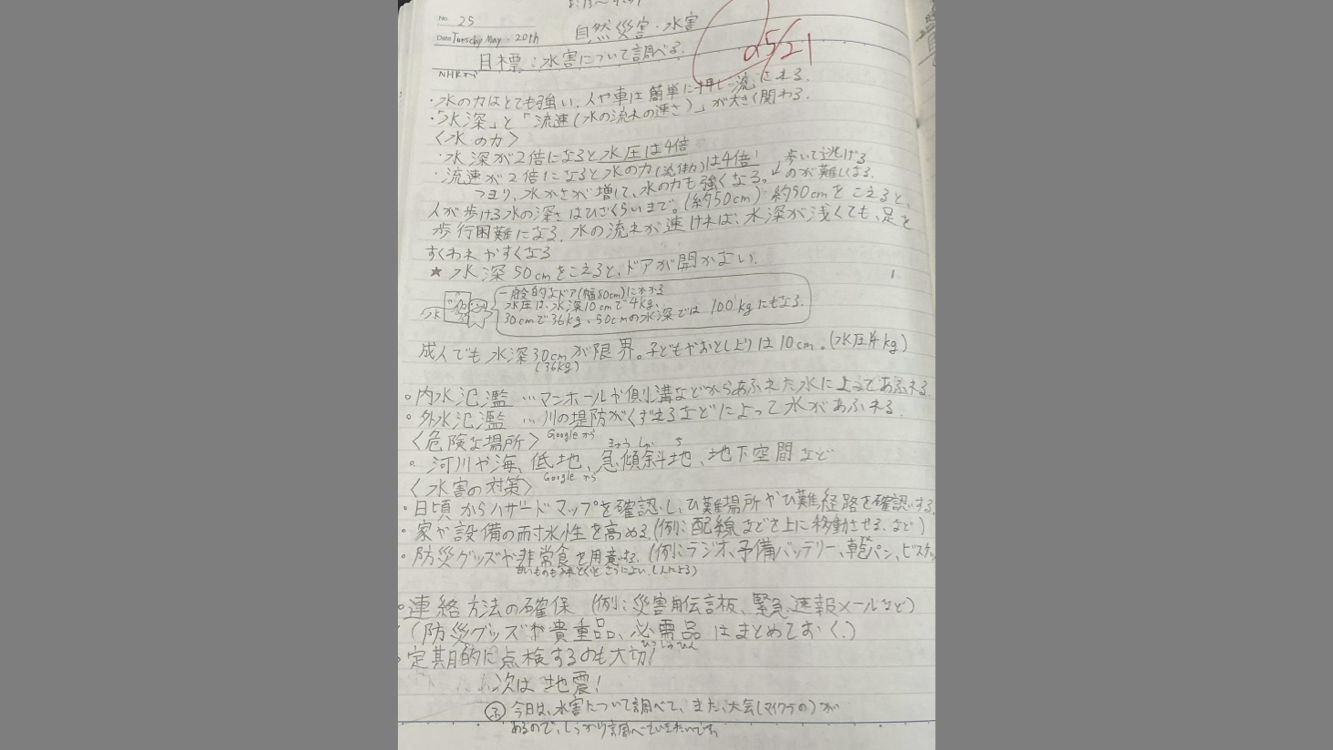 No. 25
自然災害・水害
Date Tuesday May 20th
05/21
目標:水害について調べる.
NHKから
・水の力はとても強い.人や車は簡単に押し流される.
・「水深」と「流速(水の流れの速さ)」が大きく関わる.
〈水の力〉
・水深が2倍になると水圧は4倍
・流速が2倍になると水の力(流体力)は4倍!
歩いて逃げる
のが難しくなる.
つまり、水かさが増して、水の力も強くなる。
人が歩ける水の深さはひざくらいまで。(約50cm) 約50cmをこえると、
歩行困難になる.水の流れが速ければ、水深が浅くても、足を
すくわれやすくなる
★水深50cmをこえると、ドアが開かない.
水
一般的なドア(幅80cm)にかかる
水圧は、水深10cmで4kg、
30cmで36kg、50cmの水深では100kgにもなる.
成人でも水深30cmが限界。子どもやおとしよりは10cm.(水圧4kg)
(36kg)
・内水氾濫 …マンホールや側溝などからあふれた水によってあふれる
・外水氾濫 …川の堤防がくずれるなどによって水があふれる.
〈危険な場所〉 Googleから
・河川や海、低地、急傾斜地、地下空間など
〈水害の対策〉 Googleから
・日頃からハザードマップを確認し、ひ難場所やひ難経路を確認する.
・家や設備の耐水性を高める.(例:配線などを上に移動させる.など)
・防災グッズや非常食を用意する.(例:ラジオ、予備バッテリー、乾パン、ビスケッ
・連絡方法の確保 (例:災害用伝言板、緊急速報メールなど)
(防災グッズや貴重品、必需品はまとめておく.)
ひつじゅひん
・定期的に点検するのも大切!
次は地震!
ふ 今日は、水害について調べて、また、大会(マイクラの)が
あるので、しっかり調べていきたいです